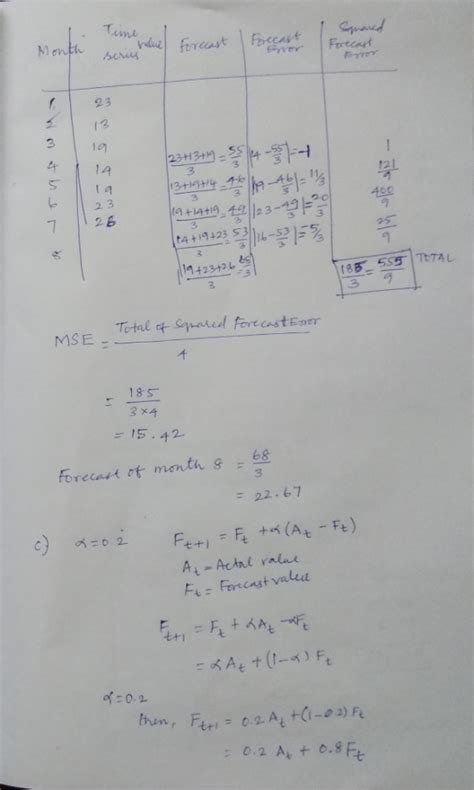 Month | Time series value | Forecast | Forecast Error | Squared Forecast Error
1 | 23
2 | 13
3 | 19 | | | 1
4 | 14 | (23+13+19)/3 = 55/3 | |14 - 55/3| = -1 | 121/9
5 | 19 | (13+19+14)/3 = 46/3 | |19 - 46/3| = 11/3 | 400/9
6 | 23 | (19+14+19)/3 = 49/3 | |23 - 49/3| = 20/3 | 25/9
7 | 26 | (14+19+23)/3 = 53/3 | |16 - 53/3| = -5/3
8 | | (19+23+26)/3 | | 185/3 = 555/9 TOTAL
MSE = Total of Squared Forecast Error / 4
= 185/(3×4)
= 15.42
Forecast of month 8 = 68/3
= 22.67
c) α=0.2 F_{t+1} = F_t + α(A_t - F_t)
A_t = Actal value
F_t = Forecast value
F_{t+1} = F_t + αA_t - αF_t
= αA_t + (1-α) F_t
α=0.2
then, F_{t+1} = 0.2 A_t + (1-0.2) F_t
= 0.2 A_t + 0.8 F_t